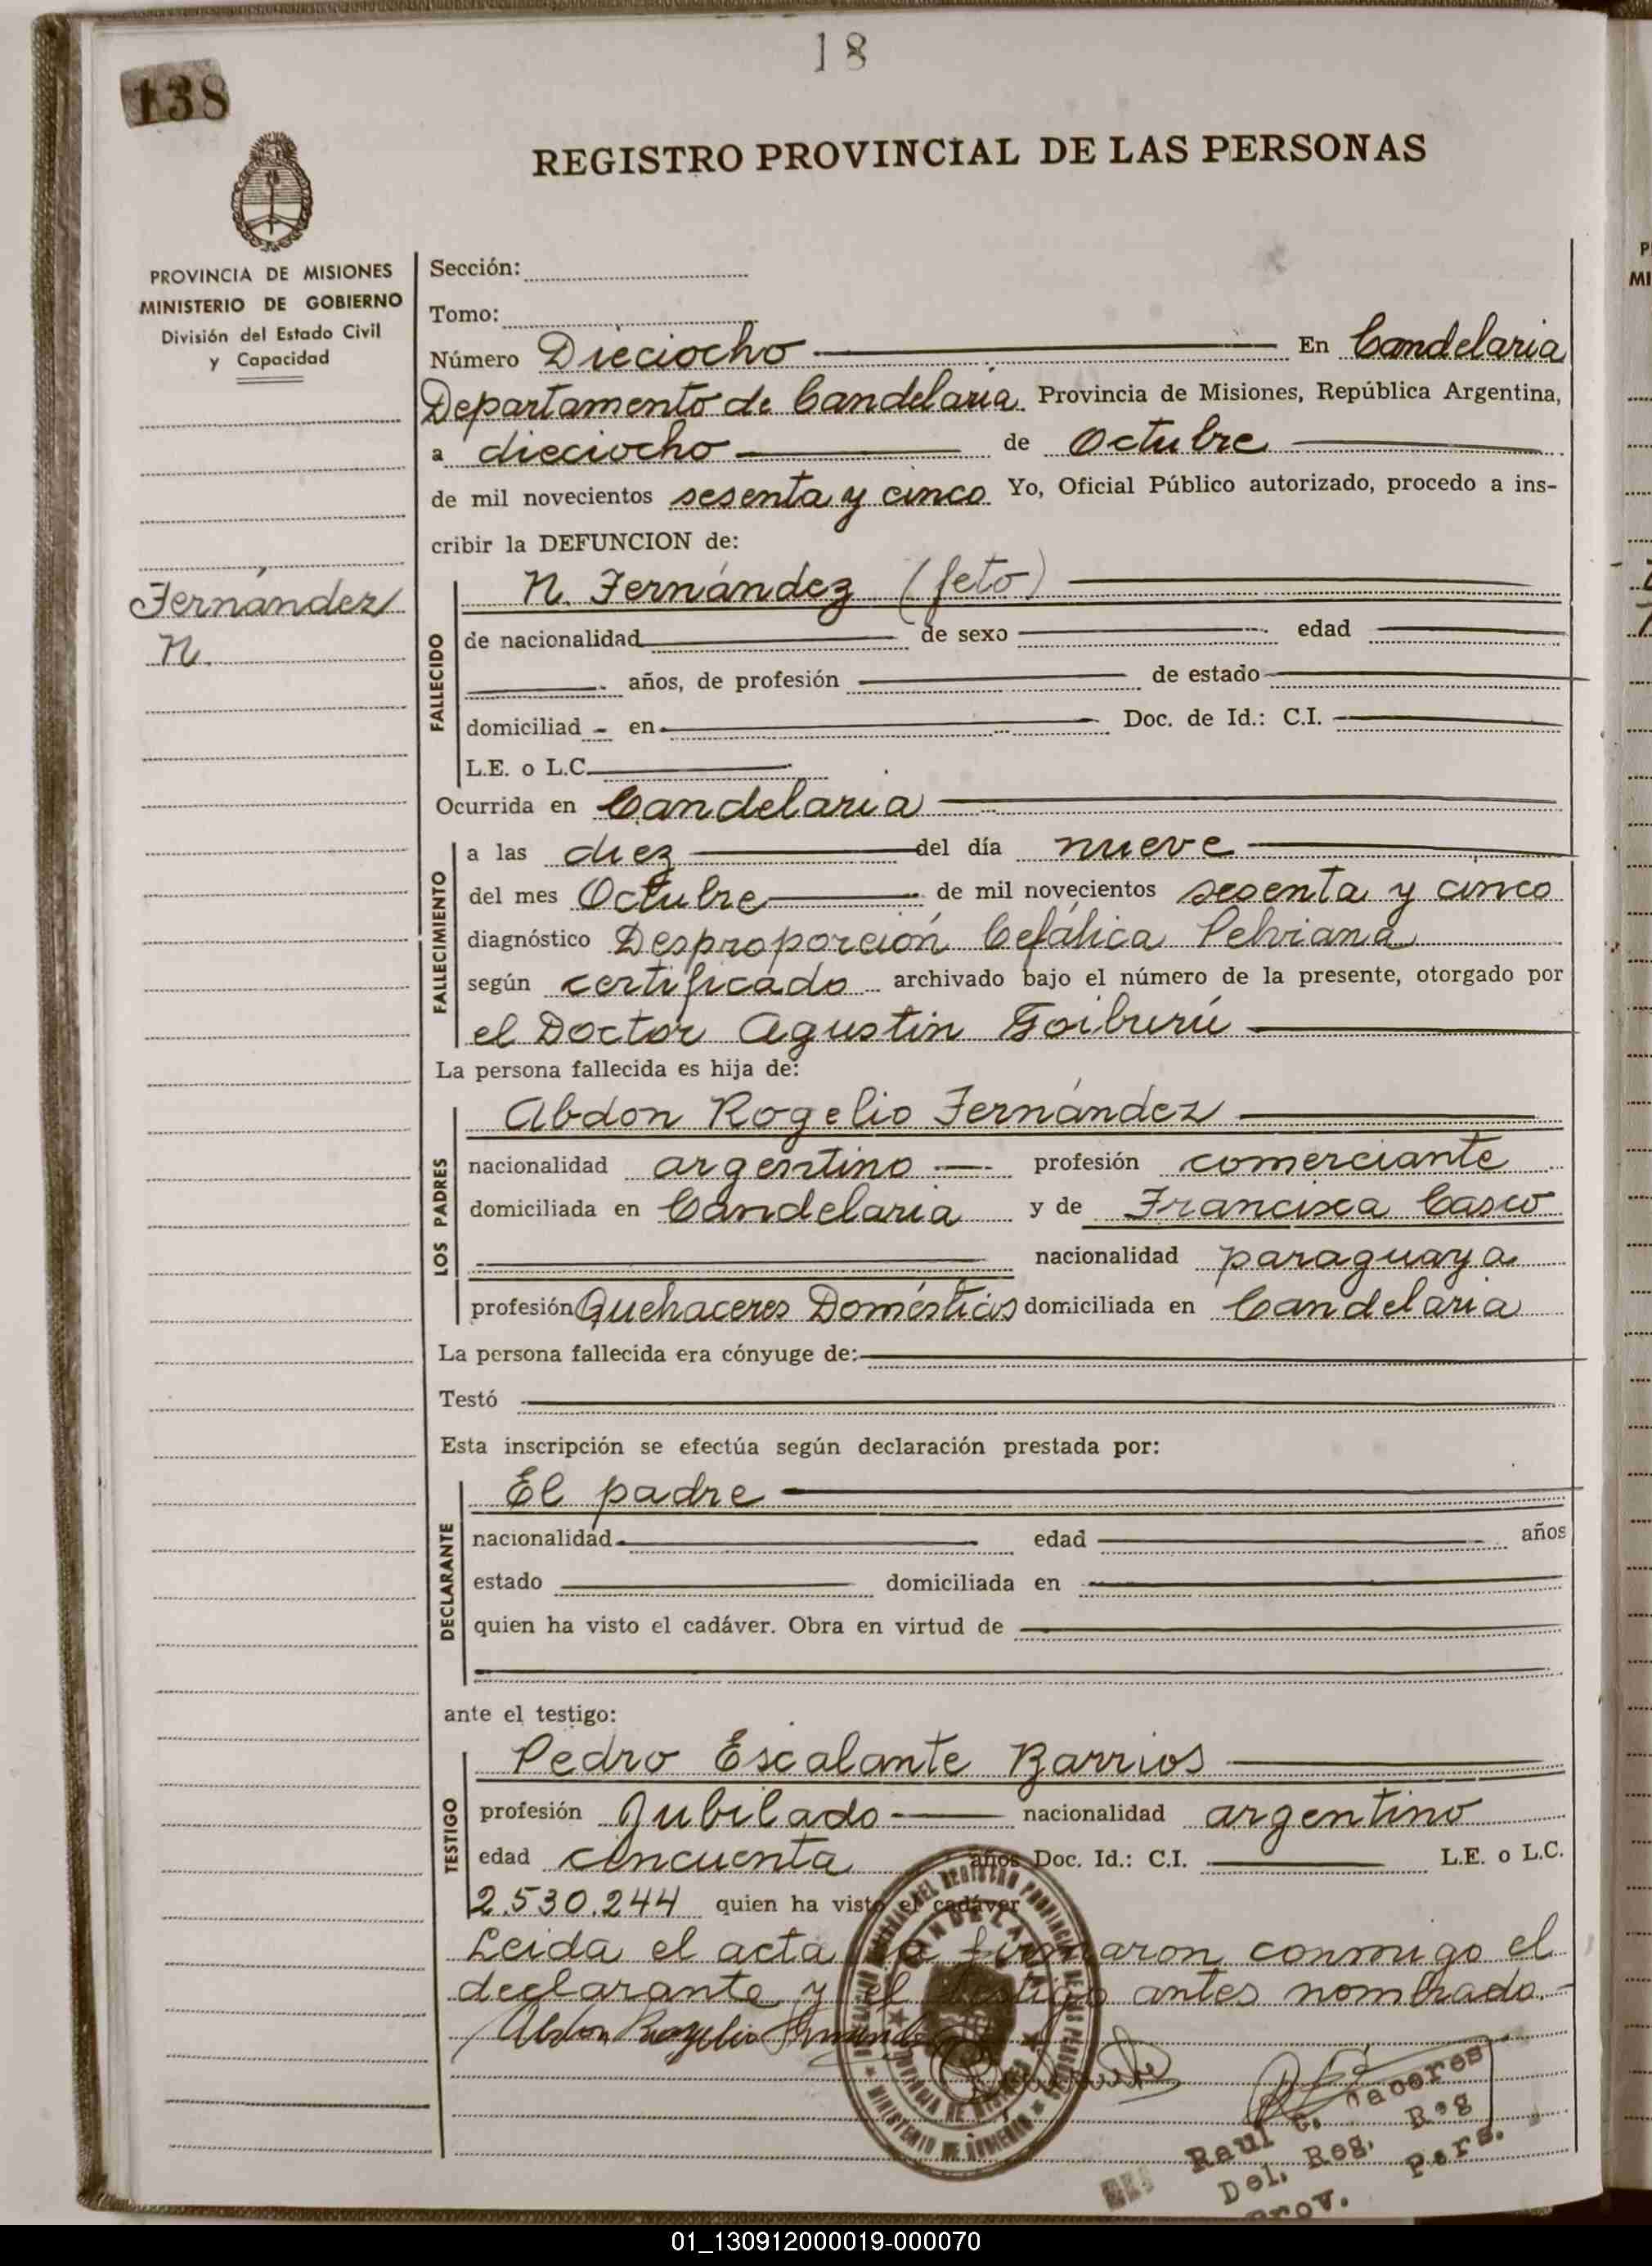 18
138
REGISTRO PROVINCIAL DE LAS PERSONAS
PROVINCIA DE MISIONES
MINISTERIO DE GOBIERNO
División del Estado Civil
y Capacidad
Fernández
N.
Sección:
Tomo:
Número Dieciocho En Candelaria
Departamento de Candelaria Provincia de Misiones, República Argentina,
a dieciocho de Octubre
de mil novecientos sesenta y cinco Yo, Oficial Público autorizado, procedo a ins-
cribir la DEFUNCION de:
FALLECIDO
N. Fernández (feto)
de nacionalidad de sexo edad
años, de profesión de estado
domiciliad - en Doc. de Id.: C.I.
L.E. o L.C.
Ocurrida en Candelaria
FALLECIMIENTO
a las diez del día nueve
del mes Octubre de mil novecientos sesenta y cinco
diagnóstico Desproporción Cefálica Pelviana
según certificado archivado bajo el número de la presente, otorgado por
el Doctor Agustin Goiburú
La persona fallecida es hija de:
LOS PADRES
Abdon Rogelio Fernández
nacionalidad argentino profesión comerciante
domiciliada en Candelaria y de Francisca Casco
nacionalidad paraguaya
profesión Quehaceres Domésticos domiciliada en Candelaria
La persona fallecida era cónyuge de:
Testó
Esta inscripción se efectúa según declaración prestada por:
DECLARANTE
El padre
nacionalidad edad años
estado domiciliada en
quien ha visto el cadáver. Obra en virtud de
ante el testigo:
TESTIGO
Pedro Escalante Barrios
profesión Jubilado nacionalidad argentino
edad cincuenta años Doc. Id.: C.I. L.E. o L.C.
2.530.244 quien ha visto el cadáver
Leida el acta la firmaron conmigo el
declarante y el testigo antes nombrado.-
Abdon Rogelio Fernandez
Raul Caceres
Del. Reg. Reg
Prov. Pers.
01_130912000019-000070